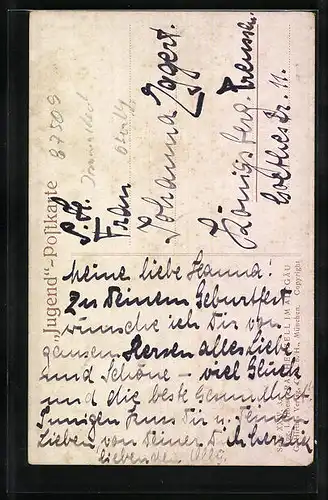 "Jugend"-Postkarte
87509
S. H.
Frau
Johanna Eggert.
Königsberg. Preussen.
Goethestr. 11.
Meine liebe Hanna!
Zu Deinem Geburtfest
wünsche ich Dir von
ganzem Herzen alles Liebe
und Schöne – viel Glück
und die beste Gesundheit.
Innigen Kuss Dir u. Deine
Lieben, von Deiner Dich herzlich
liebenden
München. Copyright